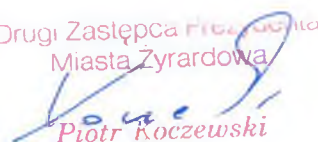 Drugi Zastępca Prezydenta
Miasta Żyrardowa
Piotr Koczewski